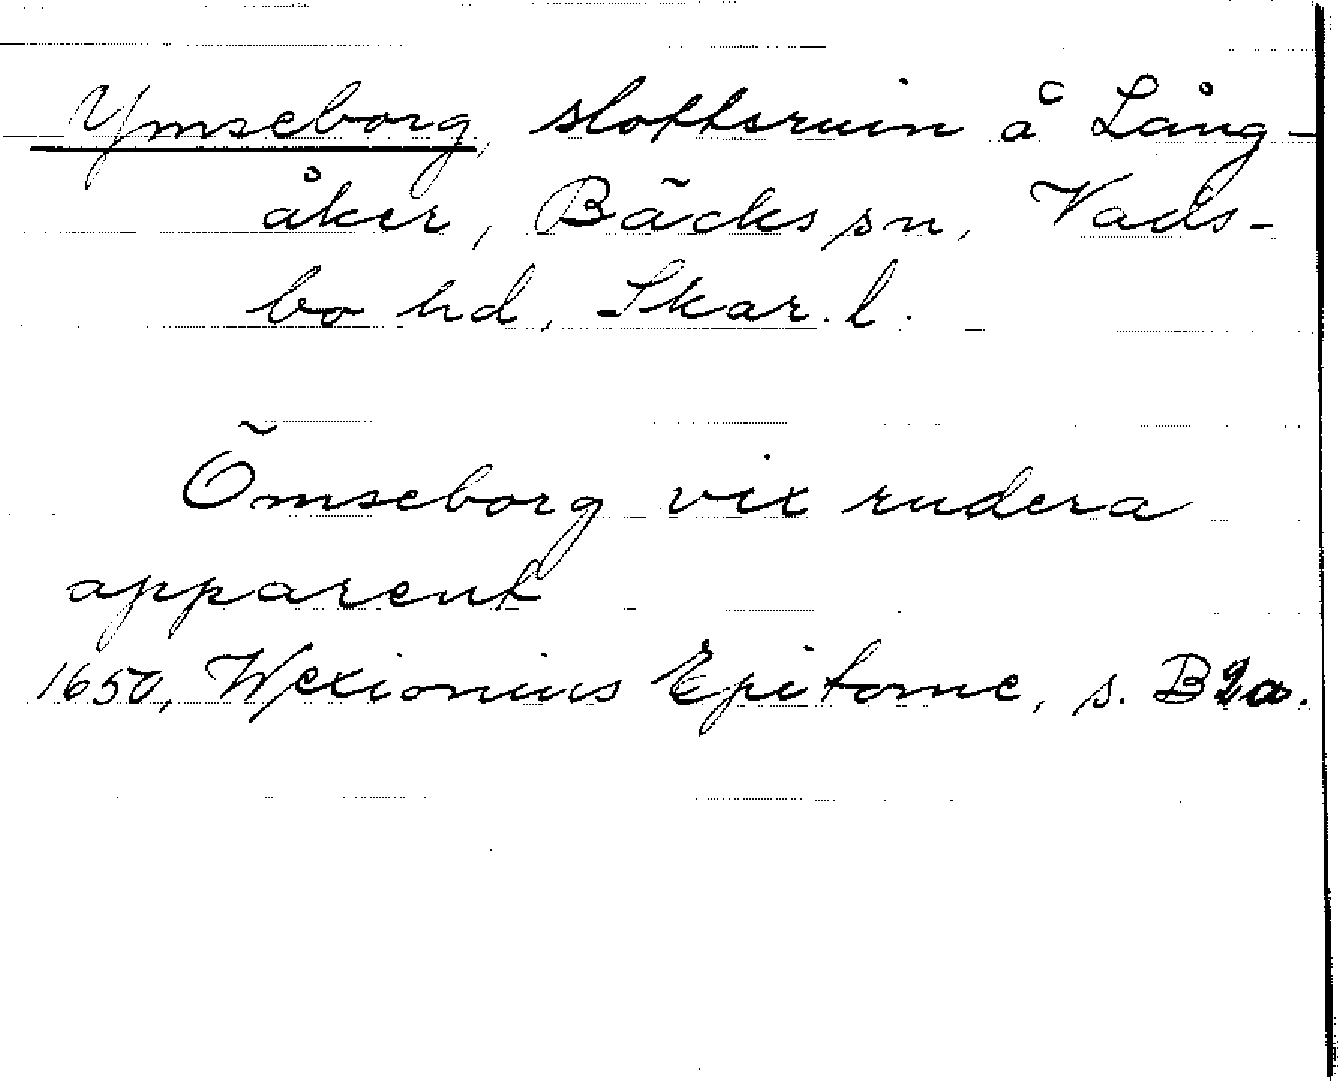 Ymseborg, slottsruin å Lång-
åker, Bäcks sn, Vads-
bo hd, Skar. l.
Ömseborg vix rudera
apparent
1650, Wexionius Epitome, s. B2a.